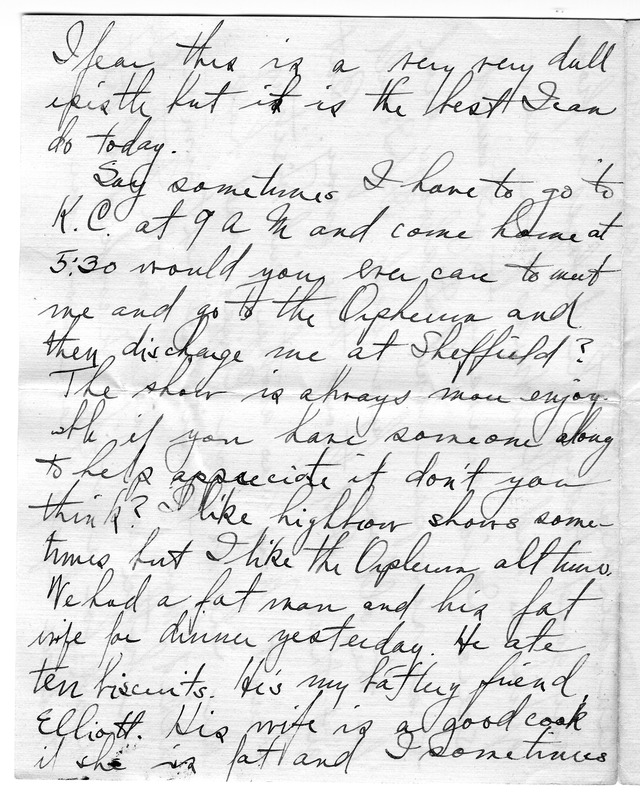 I fear this is a very very dull
epistle but it is the best I can
do today.
Say sometimes I have to go to
K.C. at 9 A M and come home at
5:30 would you ever care to meet
me and go to the Orpheum and
then discharge me at Sheffield?
The show is always more enjoy-
able if you have someone along
to help appreciate it don't you
think? I like highbrow shows some-
times but I like the Orpheum all times.
We had a fat man and his fat
wife for dinner yesterday. He ate
ten biscuits. He's my battery friend
Elliott. His wife is a good cook
if she is fat and I sometimes